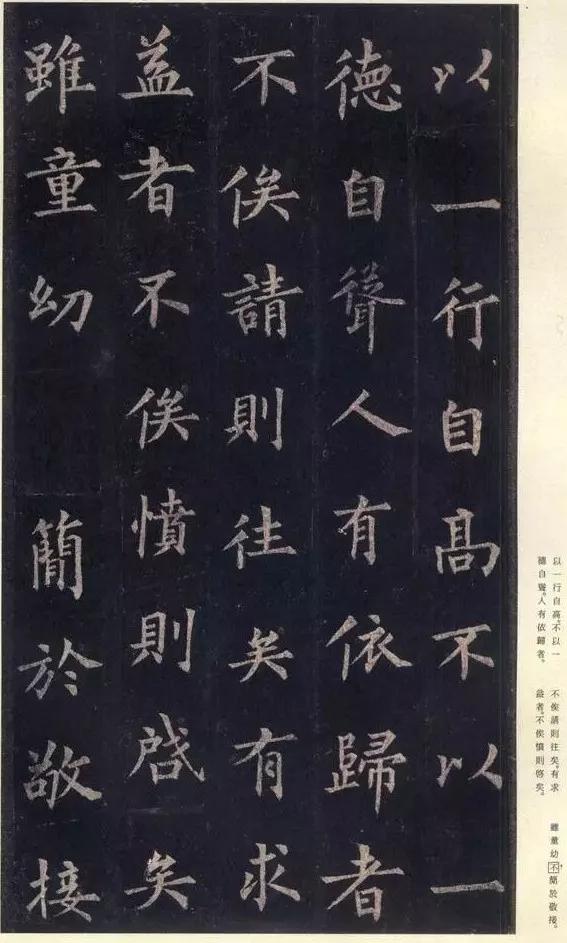 以一行自高不以一
德自聳人有依歸者
不俟請則往矣有求
益者不俟憤則啓矣
雖童幼簡於敬接
以一行自高。不以一
德自聳。人有依歸者。
不俟請則往矣。有求
益者。不俟憤則啓矣。
雖童幼不簡於敬接。